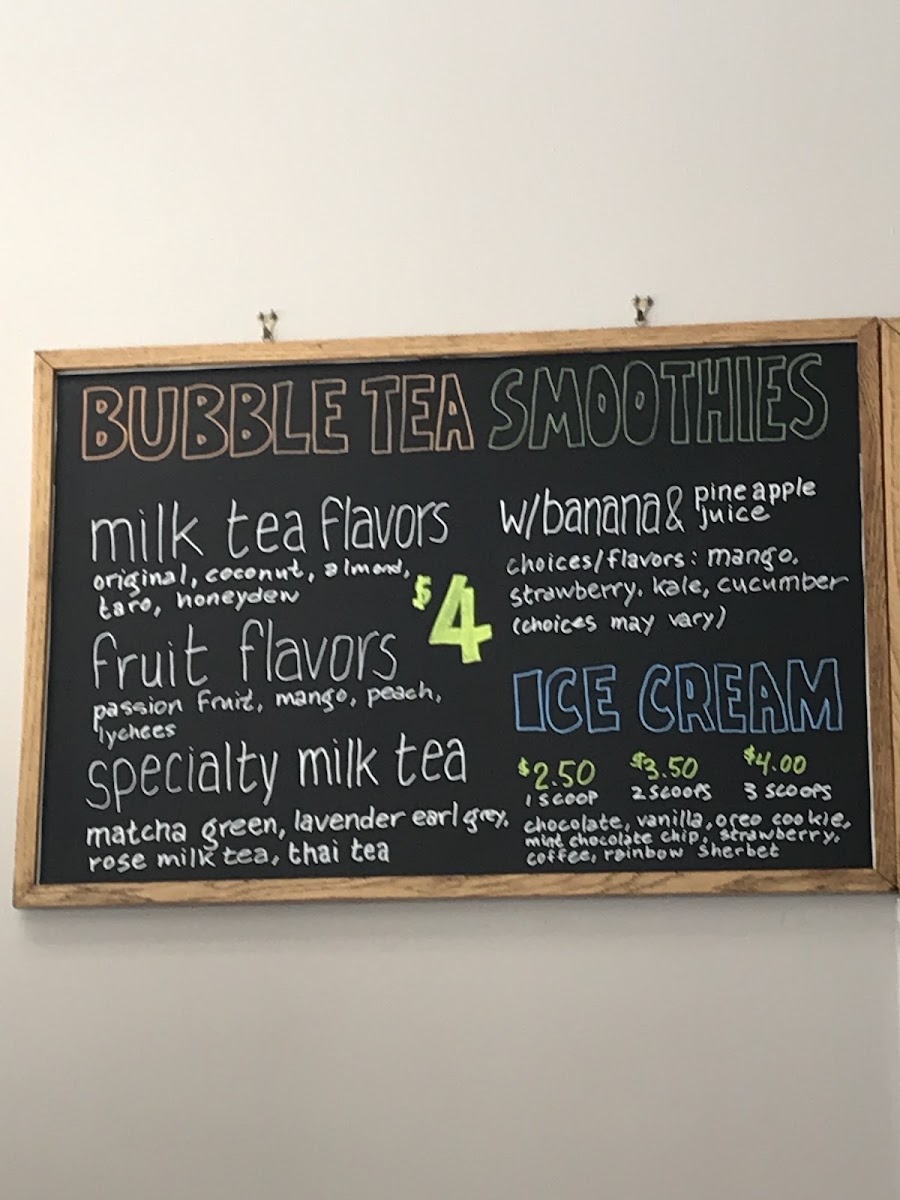 BUBBLE TEA
milk tea flavors
original, coconut, almond,
taro, honeydew
$4
fruit flavors
passion fruit, mango, peach,
lychees
specialty milk tea
matcha green, lavender earl grey,
rose milk tea, thai tea
SMOOTHIES
w/banana & pineapple juice
choices/flavors: mango,
strawberry, kale, cucumber
(choices may vary)
ICE CREAM
$2.50 $3.50 $4.00
1 SCOOP 2 SCOOPS 3 SCOOPS
chocolate, vanilla, oreo cookie,
mint chocolate chip, strawberry,
coffee, rainbow sherbet